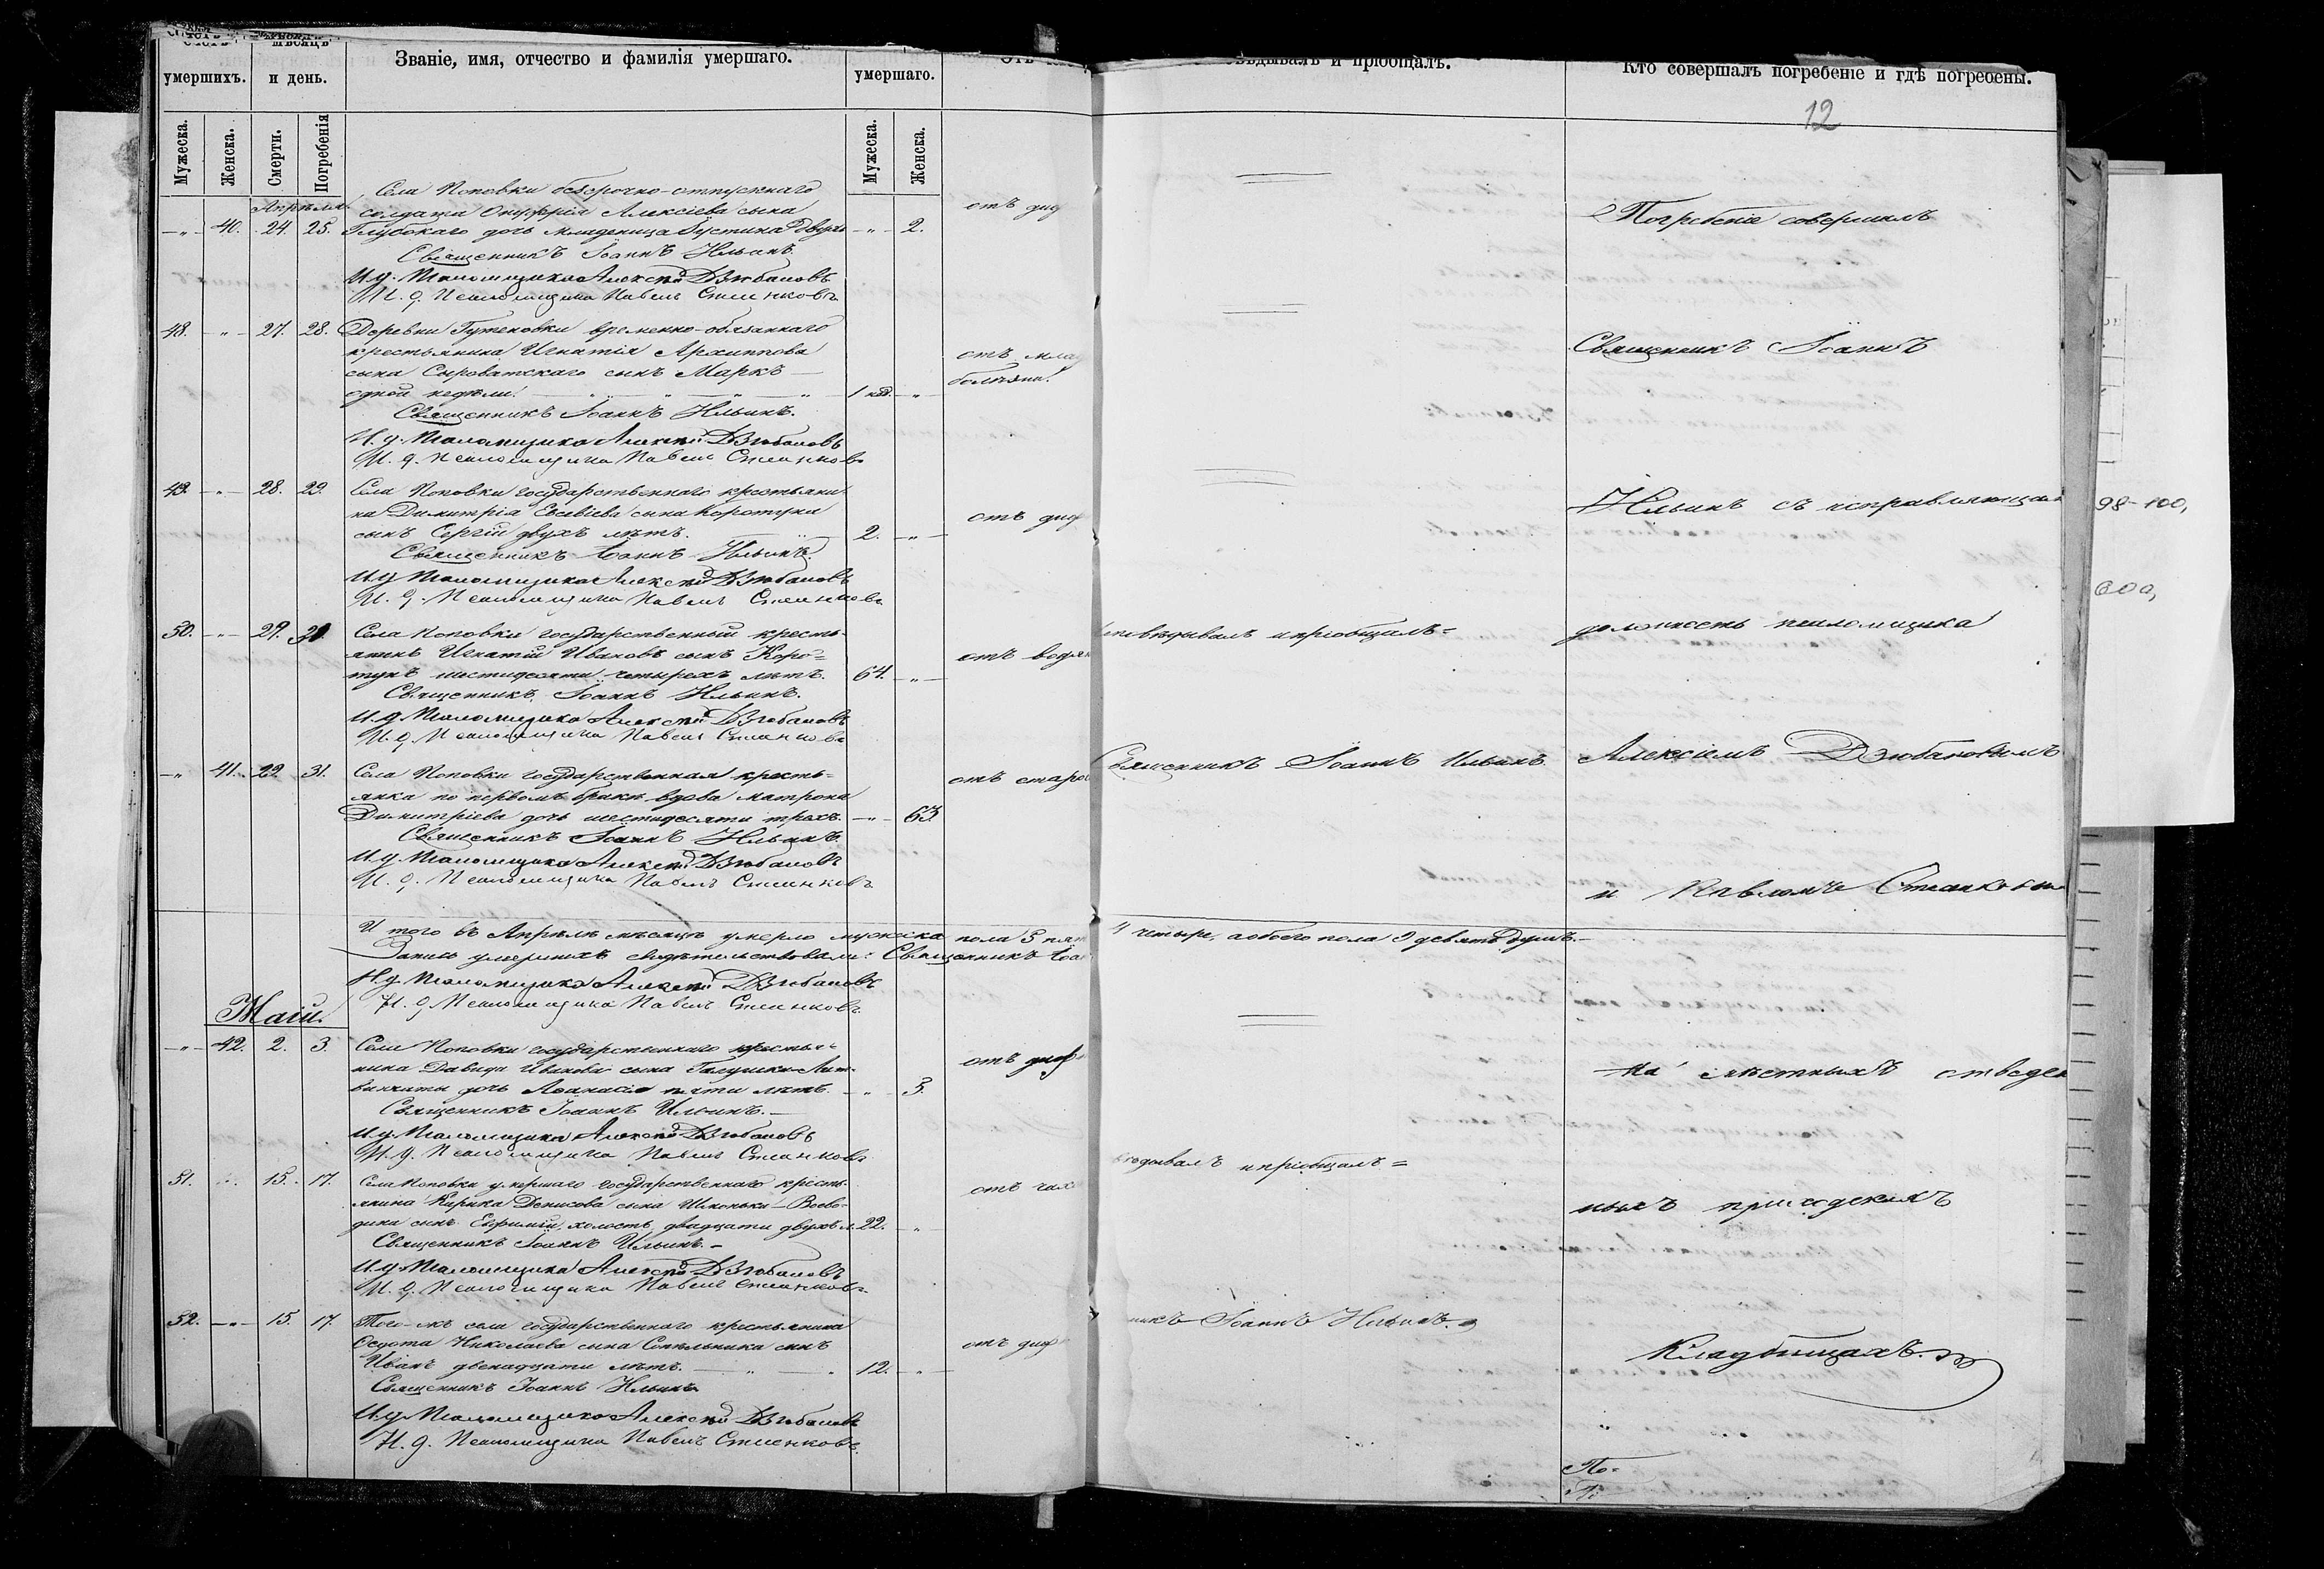 умершихъ.
и день.
Званіе, имя, отчество и фамилія умершаго.
умершаго.
Мужеска.
Женска.
Смерти.
Погребенія
Мужеска.
Женска.
Апрѣля
Села Поповки безсрочно-отпускнаго
солдата Онуфрія Алексіева сына
40. 24. 25. Глубокаго дочь младеница Іустина двухъ 2.
отъ диф
Священникъ Іоаннъ Ильинъ.
И.д. Псаломщика Алексѣй Дзюбановъ
И. д. Псаломщика Павелъ Стеенковъ
48. 27. 28. Деревни Гутеновки временно-обязаннаго
крестьянина Игнатія Архиппова
сына Сыроватскаго сынъ Маркъ
одной недѣли. 1 нед.
отъ млад
болѣзни.
Священникъ Іоаннъ Ильинъ.
И.д. Псаломщика Алексѣй Дзюбановъ
И. д. Псаломщика Павелъ Стеенковъ
49. 28. 29. Села Поповки государственнаго крестьяни-
на Димитрія Евсевіева сына Коротуна
сынъ Сергій двухъ лѣтъ. 2.
отъ диф
Священникъ Іоаннъ Ильинъ.
И.д. Псаломщика Алексѣй Дзюбановъ
И. д. Псаломщика Павелъ Стеенковъ
50. 29. 30. Села Поповки государственный кресть-
янинъ Игнатій Ивановъ сынъ Коро=
тунъ шестидесяти четырехъ лѣтъ. 64.
отъ водян
Священникъ Іоаннъ Ильинъ.
И.д. Псаломщика Алексѣй Дзюбановъ
И. д. Псаломщика Павелъ Стеенковъ
41. 29. 31. Села Поповки государственная кресть=
янка по первомъ бракѣ вдова Матрона
Димитріева дочь шестидесяти трехъ. 63
отъ старо
Священникъ Іоаннъ Ильинъ.
И.д. Псаломщика Алексѣй Дзюбановъ
И. д. Псаломщика Павелъ Стеенковъ
И того въ Апрѣлѣ мѣсяцѣ умерло мужеска пола 5 пят
Запись умершихъ свидѣтельствовали: Священникъ Іоан
И.д. Псаломщика Алексѣй Дзюбановъ
И. д. Псаломщика Павелъ Стеенковъ
Маій.
42. 2. 3. Села Поповки государственнаго крестья=
нина Давида Иванова сына Галушки-Лит-
виненты дочь Аѳанасія пяти лѣтъ. 5.
отъ диф
Священникъ Іоаннъ Ильинъ.
И.д. Псаломщика Алексѣй Дзюбановъ
И. д. Псаломщика Павелъ Стеенковъ
51. 15. 17. Села Поповки умершаго государственнаго кресть-
янина Кирика Денисова сына Шпоньки-Воево-
дина сынъ Ефимій, холостъ, двадцати двухъ л. 22.
отъ чах
Священникъ Іоаннъ Ильинъ.
И.д. Псаломщика Алексѣй Дзюбановъ
И. д. Псаломщика Павелъ Стеенковъ
52. 15. 17. Того-жъ села государственнаго крестьянина
Ѳедота Николаева сына Сопѣльника сынъ
Иванъ двенадцати лѣтъ. 12.
отъ диф
Священникъ Іоаннъ Ильинъ
И.д. Псаломщика Алексѣй Дзюбановъ
И. д. Псаломщика Павелъ Стеенковъ
и пріобщалъ.
Кто совершалъ погребеніе и гдѣ погребены.
12
Погребеніе совершилъ
Священникъ Іоаннъ
Ильинъ съ исправляющи
исповѣдывалъ и пріобщалъ=
должность псаломщика
Священникъ Іоаннъ Ильинъ.
Алексіемъ Дзюбановымъ
и Павломъ Стеенковы
4 четыре, а обоего пола 9 девять душъ.
на мѣстныхъ отведен
вѣдывалъ и пріобщалъ=
ныхъ приходскихъ
никъ Іоаннъ Ильинъ.
Кладбищахъ.
По-
98-100,
600,